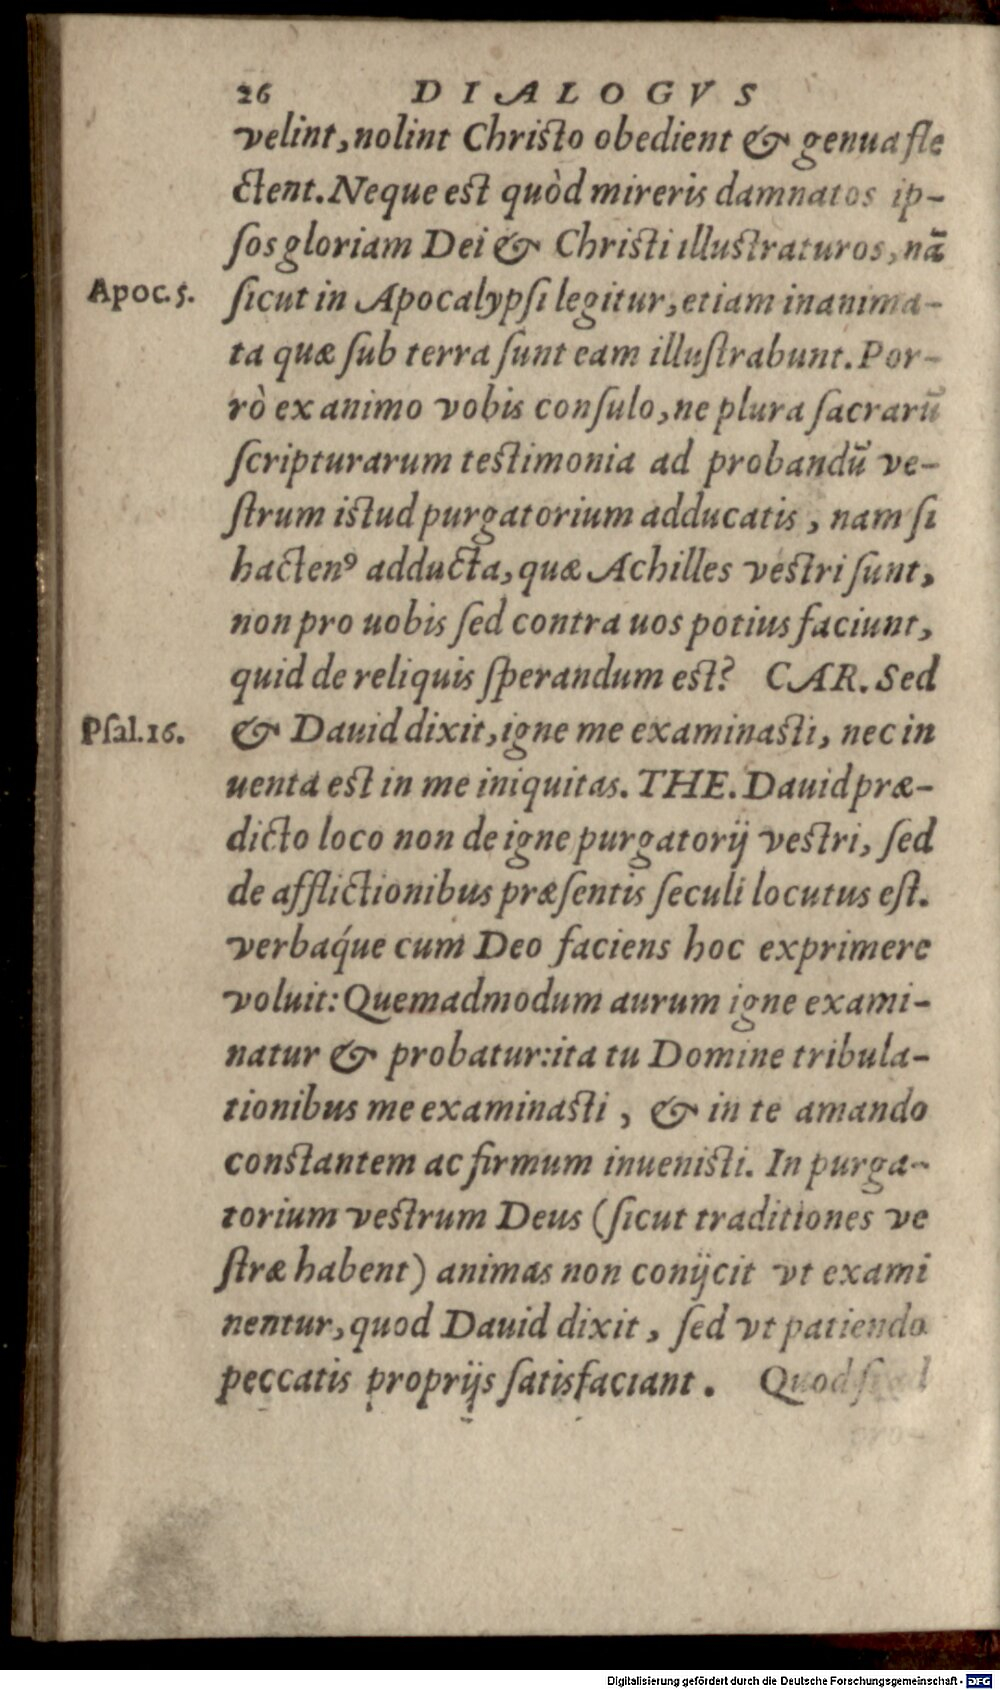 26 DIALOGVS
velint, nolint Christo obedient & genua fle
ctent. Neque est quòd mireris damnatos ip-
ſos gloriam Dei & Christi illustraturos, nā
Apoc. 5.
ſicut in Apocalypſi legitur, etiam inanima-
ta quæ ſub terra ſunt eam illuſtrabunt. Por-
rò ex animo vobis conſulo, ne plura ſacrarū
ſcripturarum testimonia ad probandū ve-
ſtrum istud purgatorium adducatis, nam ſi
hactenꝰ adducta, quæ Achilles vestri ſunt,
non pro uobis ſed contra uos potius faciunt,
quid de reliquis ſperandum est? CAR. Sed
Pſal. 16.
& Dauid dixit, igne me examinasti, nec in
uenta est in me iniquitas. THE. Dauid præ-
dicto loco non de igne purgatorij vestri, ſed
de afflictionibus præſentis ſeculi locutus eſt.
verbaq́ue cum Deo faciens hoc exprimere
voluit: Quemadmodum aurum igne exami-
natur & probatur: ita tu Domine tribula-
tionibus me examinasti, & in te amando
constantem ac firmum inuenisti. In purga-
torium vestrum Deus (ſicut traditiones ve
ſtræ habent) animas non conijcit vt exami
nentur, quod Dauid dixit, ſed vt patiendo
peccatis proprijs ſatisfaciant. Quod
Digitalisierung gefördert durch die Deutsche Forschungsgemeinschaft - DFG